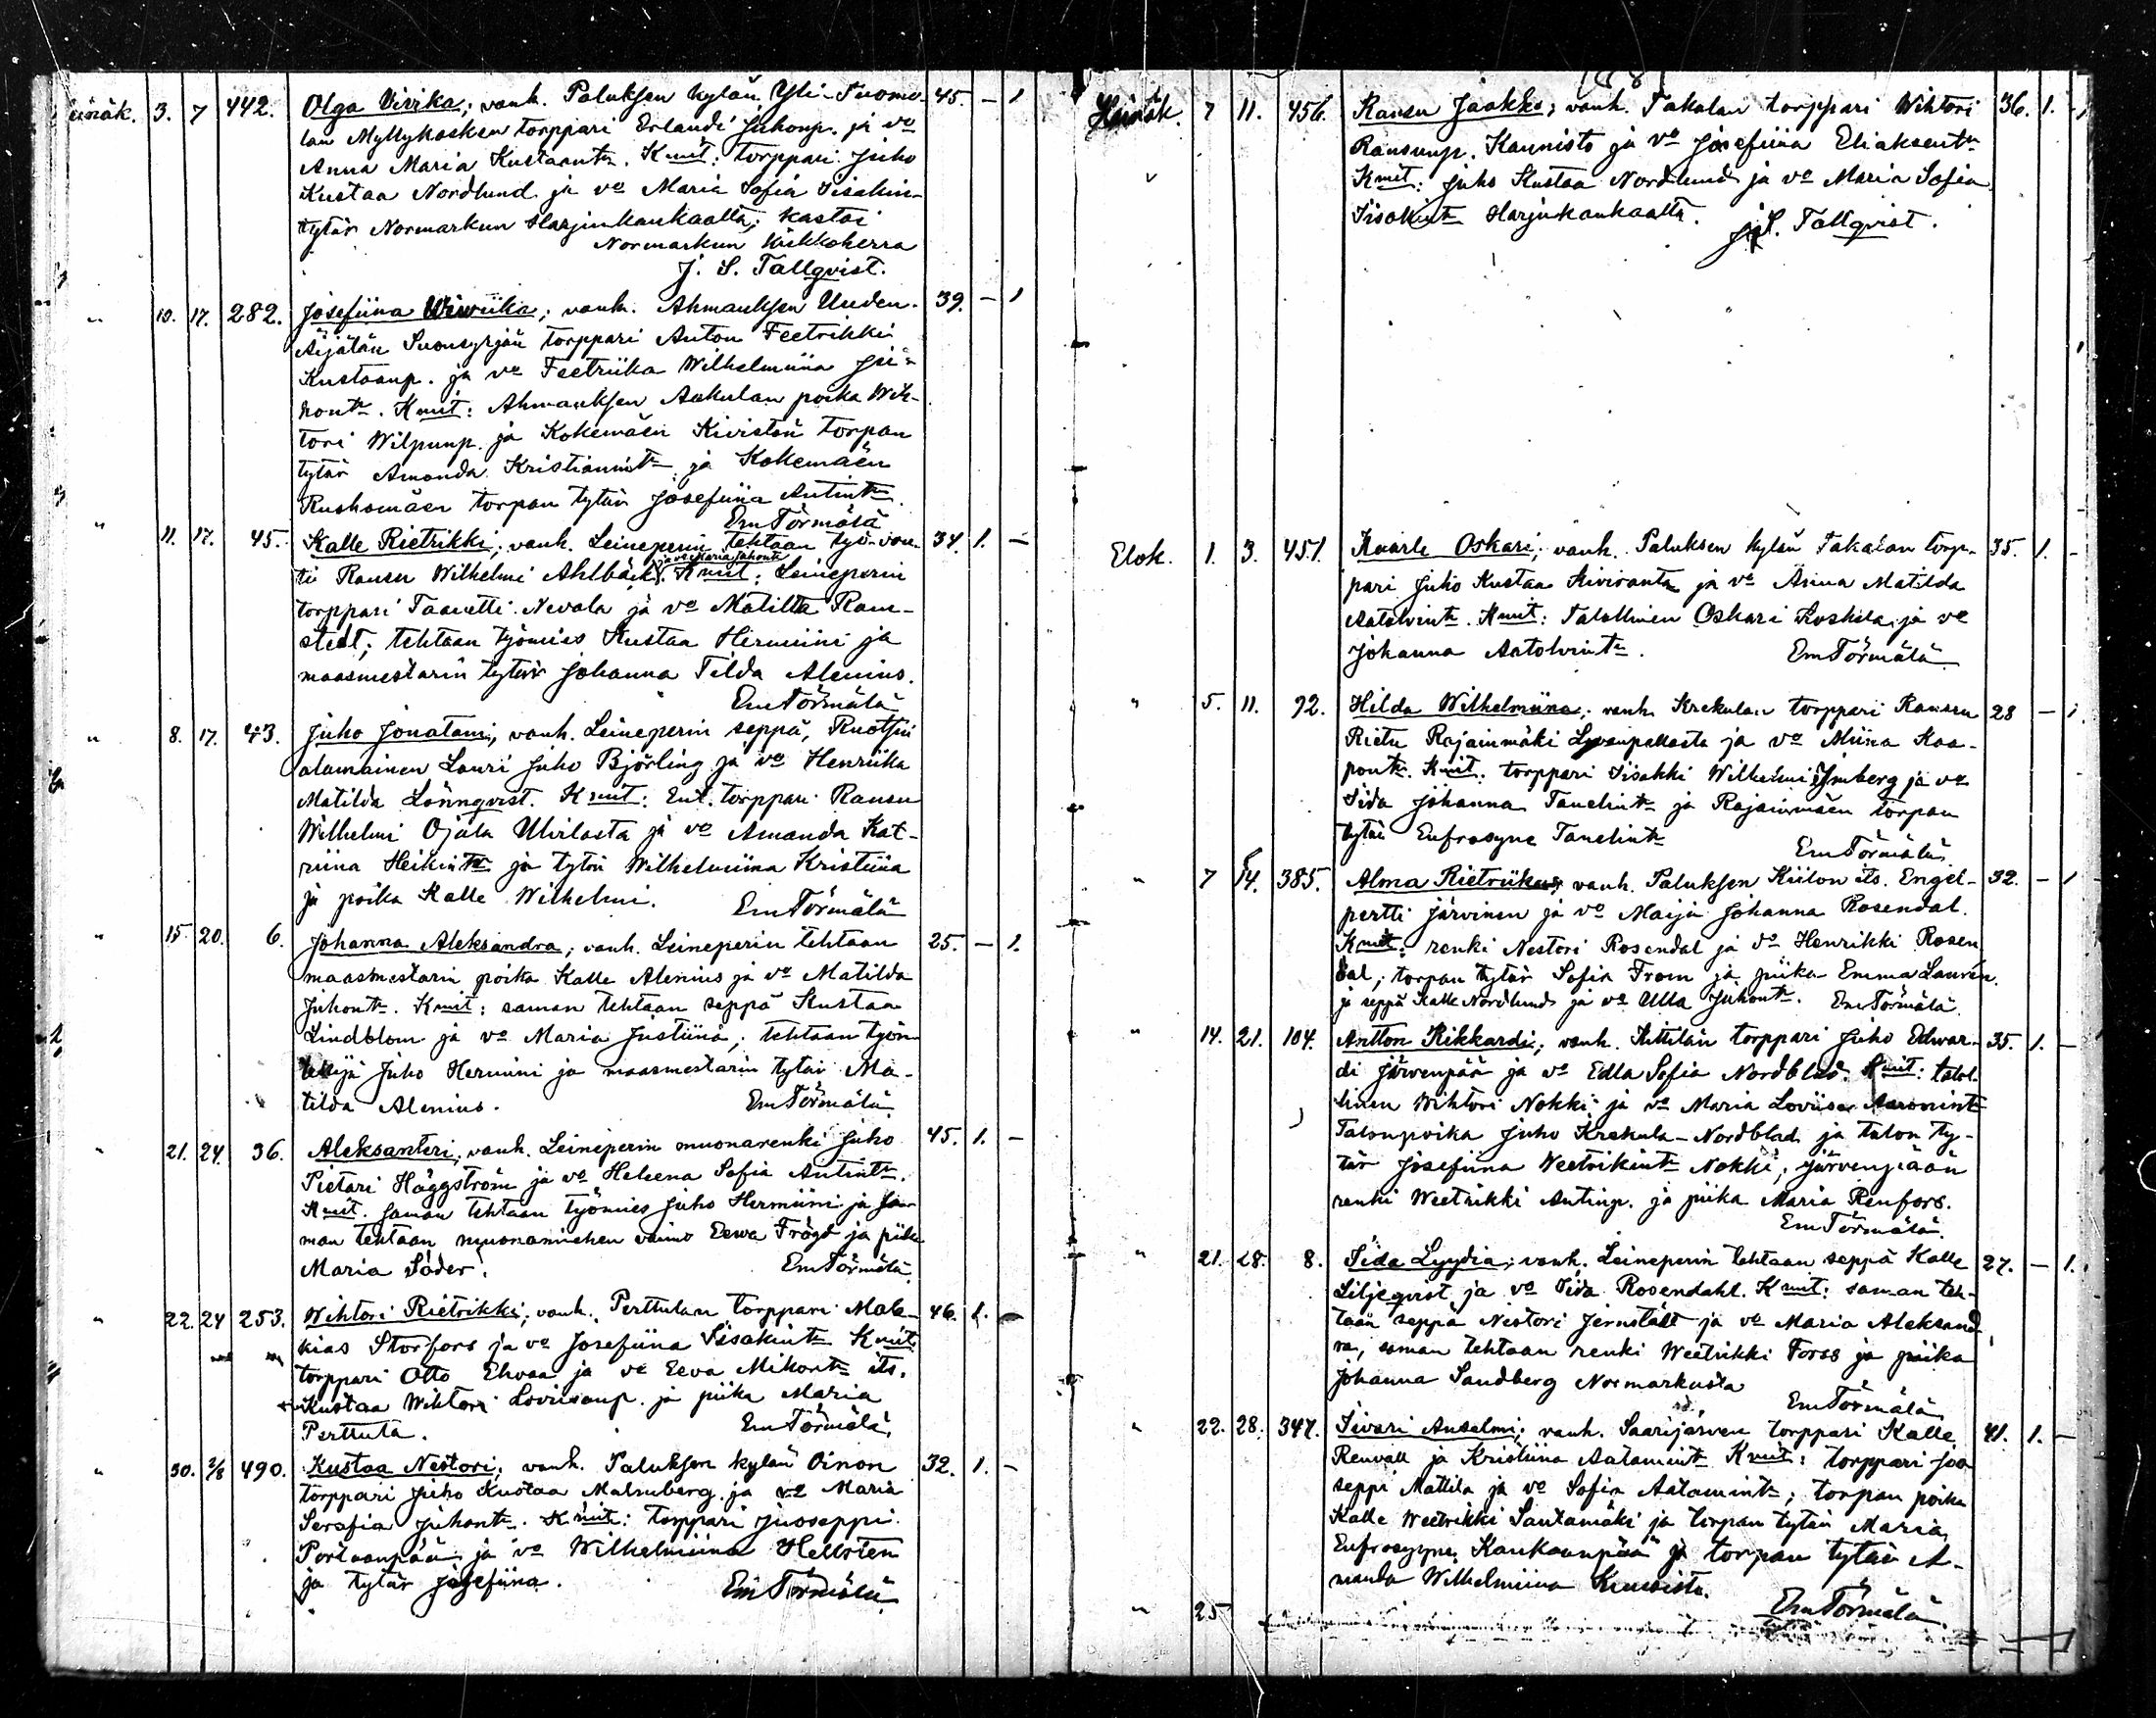 Heinäk. 3. 7 442. Olga Vivika; vanh. Paluksen kylän Yli-Tuomo- 45. - 1
lan Myllykosken torppari Erlandi Juhonp. ja vo
Anna Maria Kustaantr. Kmit: torppari Juho
Kustaa Nordlund ja vo Maria Sofia Iisakin-
tytär Normarkun Harjunkankaalta; kastoi
Normarkun Kirkkoherra
J. S. Tallqvist.
" 10. 17. 282. Josefiina Wiwiika; vanh. Ahmauksen Uuden- 39. - 1
Äijälän Suonsyrjän torppari Anton Feetrikki
Kustaanp. ja vo Feetriika Wilhelmiina Ju-
hontr. Kmit: Ahmauksen Aakulan poika Wih-
tori Wilpunp. ja Kokemäen Kivistön torpan
tytär Amanda Kristianintr ja Kokemäen
Ruohomäen torpan tytär Josefiina Antintr.
Em Törmälä
" 11. 17. 45. Kalle Rietrikki; vanh. Leineperin tehtaan työ-vou- 34. 1. -
ja vo Maria Juhontr
ti Ransu Wilhelmi Ahlbäck. Kmit: Leineperin
torppari Taavetti Nevala ja vo Matilta Ram-
stedt; tehtaan työmies Kustaa Hermiini ja
maasmestarin tytär Johanna Tilda Alenius.
Em Törmälä
" 8. 17. 43. Juho Jonatani, vanh. Leineperin seppä, Ruotsin
alamainen Lauri Juho Björling ja vo Henriika
Matilda Lönnqvist. Kmit: Ent. torppari Ransu
Wilhelmi Ojala Ulvilasta ja vo Amanda Kat-
riina Heikintr ja tytär Wilhelmiina Kristiina
ja poika Kalle Wilhelmi. Em Törmälä
" 15. 20. 6. Johanna Aleksandra; vanh. Leineperin tehtaan 25. - 1.
maasmestarin poika Kalle Alenius ja vo Matilda
Juhontr. Kmit: saman tehtaan seppä Kustaa
Lindblom ja vo Maria Justiina; tehtaan työn-
tekijä Juho Hermiini ja maasmestarin tytär Ma-
tilda Alenius. Em Törmälä.
" 21. 24. 36. Aleksanteri; vanh. Leineperin muonarenki Juho 45. 1. -
Pietari Häggström ja vo Helena Sofia Antintr.
Kmit. saman tehtaan työmies Juho Hermiini ja sa-
man tehtaan muonamiehen vaimo Eewa Frögd ja piika
Maria Söder. Em Törmälä.
" 22. 24 253. Wihtori Rietrikki; vanh. Perttulan torppari Mala- 46. 1. -
kias Storfors ja vo Josefiina Iisakintr Kmit:
torppari Otto Ehvaa ja vo Eeva Mikontr its.
Kustaa Wihtori Loviisanp. ja piika Maria
Perttula. Em Törmälä.
" 30. 2/8 490. Kustaa Nestori; vanh. Paluksen kylän Oinon 32. 1. -
torppari Juho Kustaa Malmberg ja vo Maria
Serafia Juhontr. Kmit: torppari Juoseppi
Portaanpää ja vo Wilhelmiina Hellsten
ja tytär Josefiina. Em Törmälä
1881
Heinäk. 7 11. 456. Ransu Jaakko; vanh. Takalan torppari Wihtori 36. 1. -
Ransunp. Kaunisto ja vo Josefiina Eliaksentr
Kmit: Juho Kustaa Nordlund ja vo Maria Sofia
Iisakintr Harjukankaalta. J. S. Tallqvist.
Elok. 1. 3. 451. Kaarle Oskari; vanh. Paluksen kylän Takalan torp- 35. 1. -
pari Juho Kustaa Kiviranta ja vo Anna Matilda
Aatolvintr. Kmit: Talollinen Oskari Koskela ja vo
Johanna Aatolvintr. Em Törmälä
" 5. 11. 92. Hilda Wilhelmiina; vanh. Krekulan torppari Ransu 28 - 1.
Rietu Rajainmäki ja vo Miina Kaa-
pontr. Kmit. torppari Iisakki Wilhelmi Ymberg ja vo
Iida Johanna Tanelintr ja Rajainmäen torpan
tytär Eufrosyne Tanelintr
Em Törmälä.
" 7 14. 385. Alma Rietriika; vanh. Paluksen Kiilon its. Engel- 32. - 1
pertti Järvinen ja vo Maija Johanna Rosendal.
Kmit: renki Nestori Rosendal ja vo Henrikki Rosen
dal; torpan tytär Sofia From ja piika Emma Laurén.
ja seppä Kalle Nordlund ja vo Ulla Juhontr. Em Törmälä.
" 14. 21. 104. Antton Rikkardi; vanh. Kittilän torppari Juho Edvar- 35. 1. -
di Järvenpää ja vo Edla Sofia Nordblad. Kmit: talol-
linen Wihtori Nokki ja vo Maria Loviisa Aaronintr
Talonpoika Juho Krekula-Nordblad ja talon ty-
tär Josefiina Weetrikintr Nokki; Järvenpään
renki Weetrikki Antinp. ja piika Maria Renfors.
Em Törmälä.
" 21. 28. 8. Iida Lyydia; vanh. Leineperin tehtaan seppä Kalle 27. - 1.
Liljeqvist ja vo Iida Rosendahl. Kmit: saman teh-
taan seppä Nestori Jernstält ja vo Maria Aleksand-
ra, saman tehtaan renki Weetrikki Forss ja piika
Johanna Sandberg Normarkusta
Em Törmälä
" 22. 28. 347. Iivari Anselmi; vanh. Saarijärven torppari Kalle 41. 1. -
Renvall ja Kristiina Aatamintr Kmit: torppari Joo-
seppi Mattila ja vo Sofia Aatamintr; torpan poika
Kalle Weetrikki Santamäki ja torpan tytär Maria
Eufrosyyne Kankaanpää ja torpan tytär A-
manda Wilhelmiina
Em Törmälä
" 25